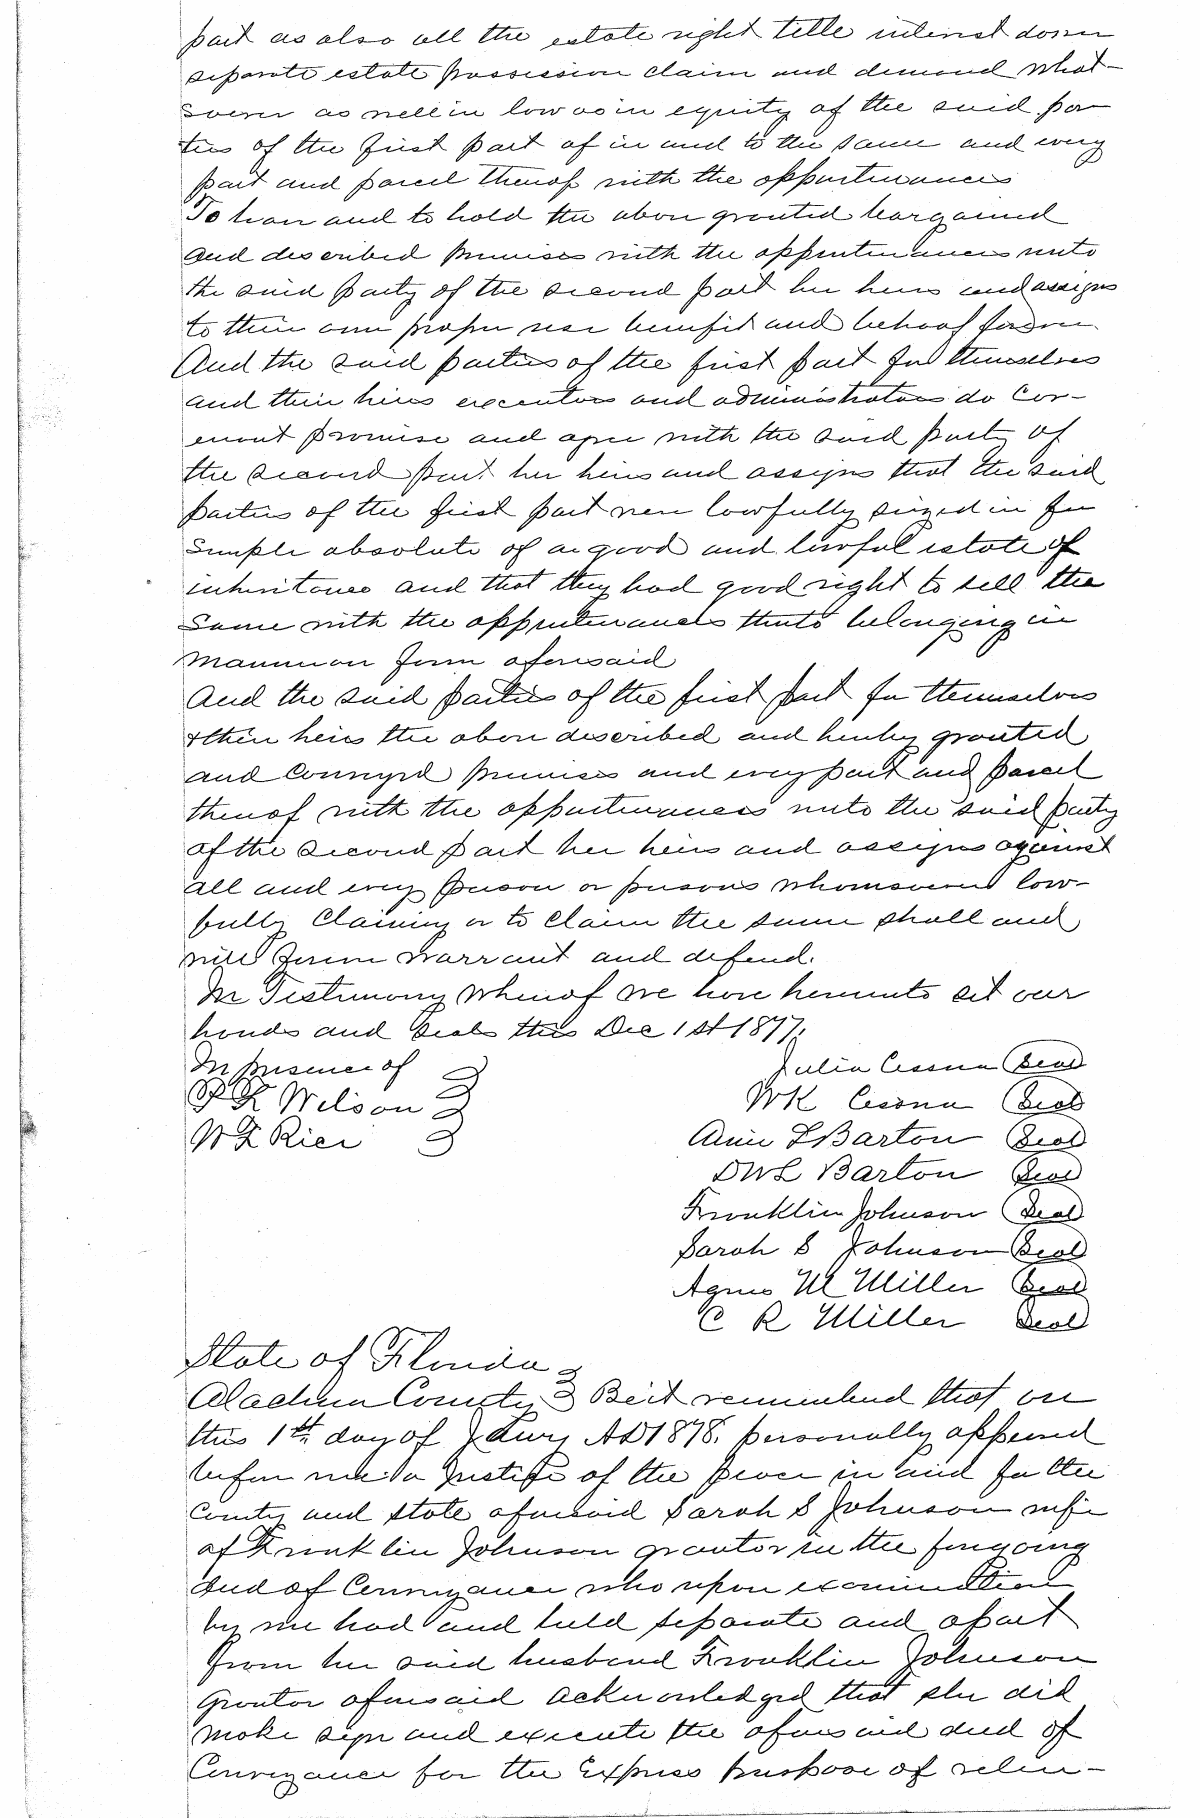 part as also all the estate right title interest dower
separate estate possession claim and demand what-
soever as well in law as in equity of the said par
ties of the first part of in and to the same and every
part and parcel thereof with the appurtenances
To have and to hold the above granted bargained
and described premises with the appurtenances unto
the said party of the second part her heirs and assigns
to their own proper use benefit and behoof forever
And the said parties of the first part for themselves
and their heirs executors and administrators do Cov-
enant promise and agree with the said party of
the second part her heirs and assigns that the said
parties of the first part were lawfully seized in fee
simple absolute of a good and lawful estate of
inheritance and that they had good right to sell the
same with the appurtenances thereto belonging in
manner on form aforesaid
And the said parties of the first part for themselves
& their heirs the above described and hereby granted
and Conveyed premises and every part and parcel
thereof with the appurtenances unto the said party
of the second part her heirs and assigns against
all and every person or persons whomsoever law-
fully Claiming or to Claim the same shall and
will forever warrant and defend.
In Testimony whereof we have hereunto set our
hands and seals this Dec 1st 1877.
In presence of
P K Wilson
W L Rice
Julia Cessna Seal
WK Cessna Seal
Annie L Barton Seal
DWL Barton Seal
Franklin Johnson Seal
Sarah S Johnson Seal
Agnes M Miller Seal
C R Miller Seal
State of Florida
Alachua County Be it remembered that on
this 1st day of Jany AD 1878. personally appeared
before me a Justice of the peace in and for the
County and State aforesaid Sarah S Johnson wife
of Franklin Johnson grantor in the foregoing
deed of Conveyance who upon examination
by me had and held separate and apart
from her said husband Franklin Johnson
Grantor aforesaid acknowledged that she did
make sign and execute the aforesaid deed of
Conveyance for the Express purpose of relin-